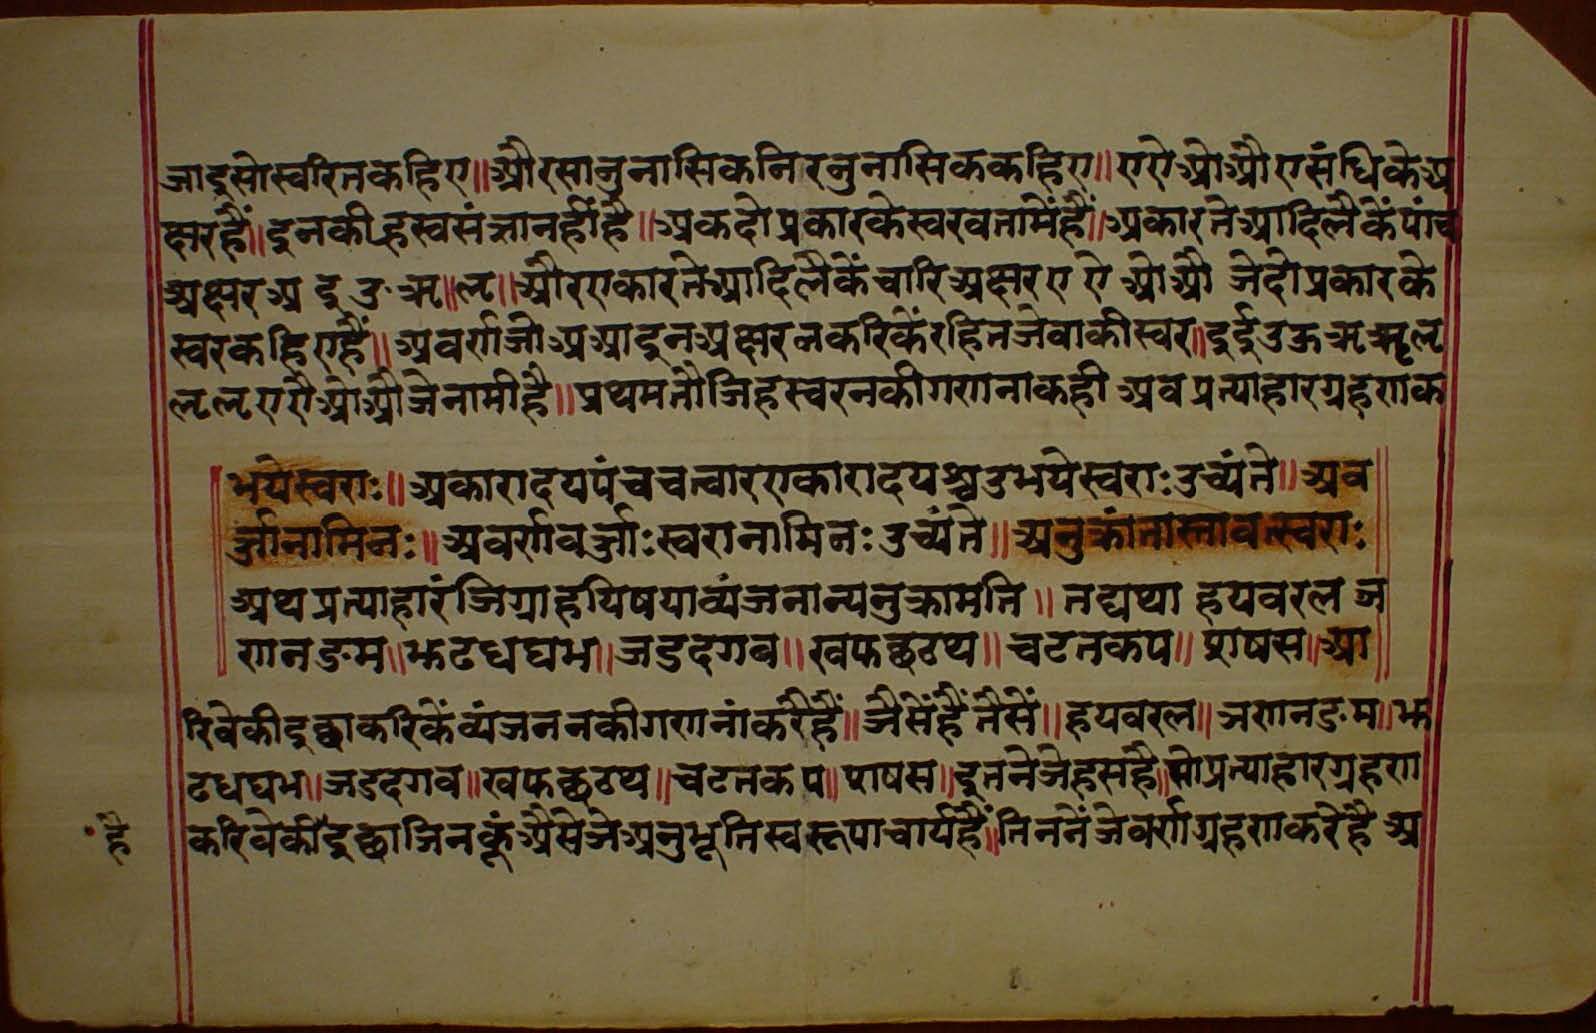 जाइसोस्वरितकहिए॥औरसानुनासिकनिरनुनासिककहिए॥एऐओऔएसंधिकेअ
क्षरहैं॥इनकीह्रस्वसंज्ञानहींहै॥अकदोप्रकारकेस्वरवतामेंहैं॥अकारतेआदिलैकेंपांच
अक्षरअ इ उ ऋ॥ऌ॥औरएकारतेआदिलैकेंचारिअक्षरए ऐ ओऔ जेदोप्रकारके
स्वरकहिएहैं॥अवर्णजोअआइनअक्षरनकरिकेंरहितजेवाकीस्वर॥इईउऊऋॠऌ
ऌऌएऐओऔजेनामीहै॥प्रथमतौजिहस्वरनकीगणनाकही अवप्रत्याहारग्रहणक
भयेस्वराः॥अकारादयपंचचत्वारएकारादयश्चउभयेस्वराःउच्यंते॥अव
र्जानामिनः॥अवर्णवर्जाःस्वरानामिनःउच्यंते॥अनुक्रांतास्तावत्स्वराः
अथप्रत्याहारंजिग्राहयिषयाव्यंजनान्यनुक्रामति॥तद्यथा हयवरल ञ
णनङम॥झढधघभ॥जडदगब॥खफछठथ॥चटतकप॥शषस॥आ
रिवेकीइछाकरिकेंव्यंजननकीगणनांकरैहैं॥जैसेंहैंतैसें॥हयवरल॥ञणनङम॥झ
ढधघभ॥जडदगव॥खफछठथ॥चटतकप॥शषस॥इतनेजेहसहै॥सोप्रत्याहारग्रहण
करिवेकीइछाजिनकूंअैसेजेअनुभूतिस्वरूपाचार्यहैं॥तिननेंजेवर्णग्रहणकरेंहै अ
है